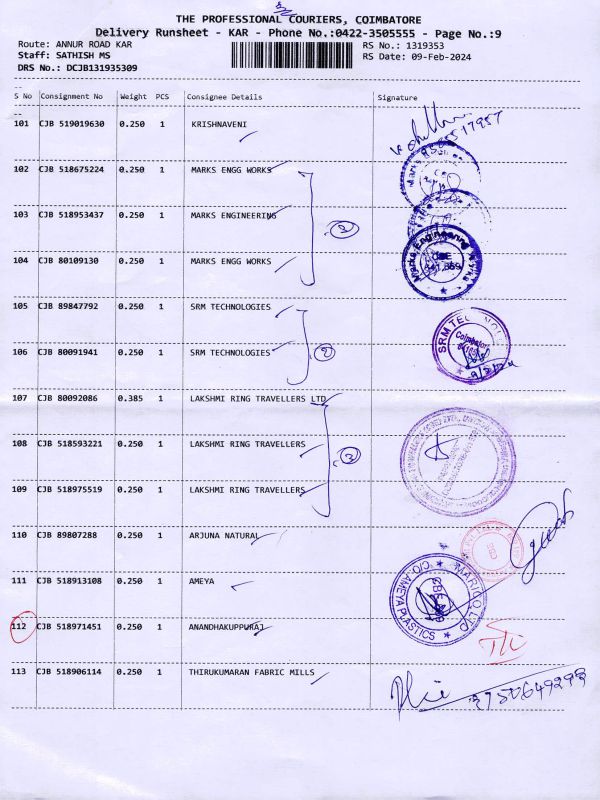 THE PROFESSIONAL COURIERS, COIMBATORE
Delivery Runsheet - KAR - Phone No.:0422-3505555 - Page No.:9
Route: ANNUR ROAD KAR RS No.: 1319353
Staff: SATHISH MS RS Date: 09-Feb-2024
DRS No.: DCJB131935309
S No Consignment No Weight PCS Consignee Details Signature
101 CJB 519019630 0.250 1 KRISHNAVENI
102 CJB 518675224 0.250 1 MARKS ENGG WORKS
103 CJB 518953437 0.250 1 MARKS ENGINEERING
3
104 CJB 80109130 0.250 1 MARKS ENGG WORKS
105 CJB 89847792 0.250 1 SRM TECHNOLOGIES
SRM TECHNOLO
Coimbatore
106 CJB 80091941 0.250 1 SRM TECHNOLOGIES
2
9/2/24
107 CJB 80092086 0.385 1 LAKSHMI RING TRAVELLERS LTD
108 CJB 518593221 0.250 1 LAKSHMI RING TRAVELLERS
3
109 CJB 518975519 0.250 1 LAKSHMI RING TRAVELLERS
110 CJB 89807288 0.250 1 ARJUNA NATURAL
111 CJB 518913108 0.250 1 AMEYA
MARICO LTD
C/O. AMEYA PLASTICS
112 CJB 518971451 0.250 1 ANANDHAKUPPURAJ
113 CJB 518906114 0.250 1 THIRUKUMARAN FABRIC MILLS